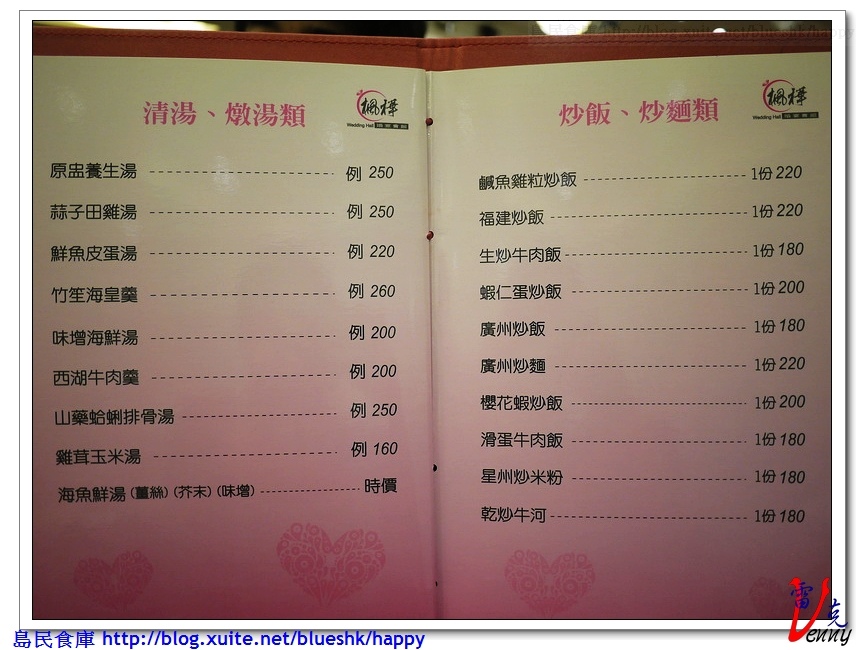 清湯、燉湯類
楓樺
Wedding Hall
原盅養生湯 例 250
蒜子田雞湯 例 250
鮮魚皮蛋湯 例 220
竹笙海皇羹 例 260
味增海鮮湯 例 200
西湖牛肉羹 例 200
山藥蛤蜊排骨湯 例 250
雞茸玉米湯 例 160
海魚鮮湯(薑絲)(芥末)(味增) 時價
炒飯、炒麵類
楓樺
Wedding Hall
鹹魚雞粒炒飯 1份 220
福建炒飯 1份 220
生炒牛肉飯 1份 180
蝦仁蛋炒飯 1份 200
廣州炒飯 1份 180
廣州炒麵 1份 220
櫻花蝦炒飯 1份 200
滑蛋牛肉飯 1份 180
星州炒米粉 1份 180
乾炒牛河 1份 180
雷克
Venny
島民食庫 http://blog.xuite.net/blueshk/happy